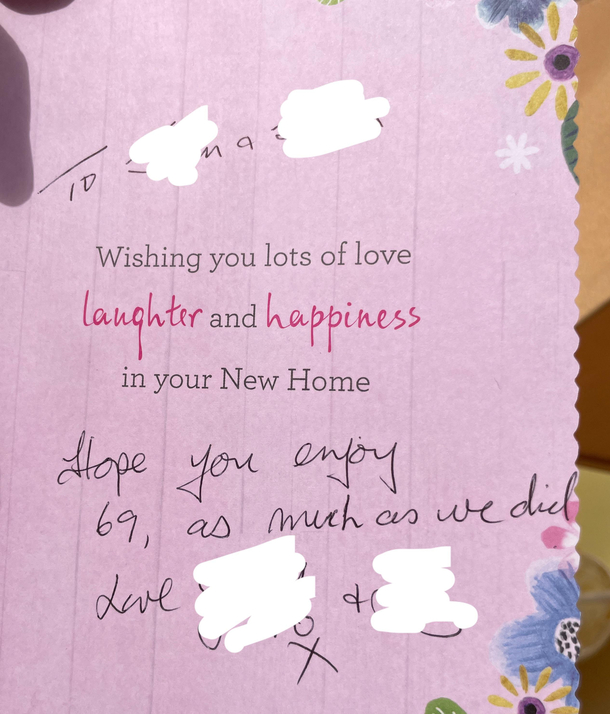 To
Wishing you lots of love
laughter and happiness
in your New Home
Hope you enjoy
69, as much as we did
Love +
X